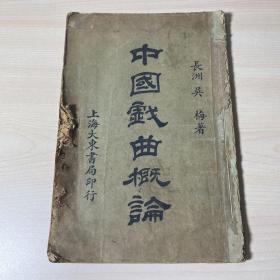 長洲 吳梅著
中國戲曲概論
上海大東書局印行